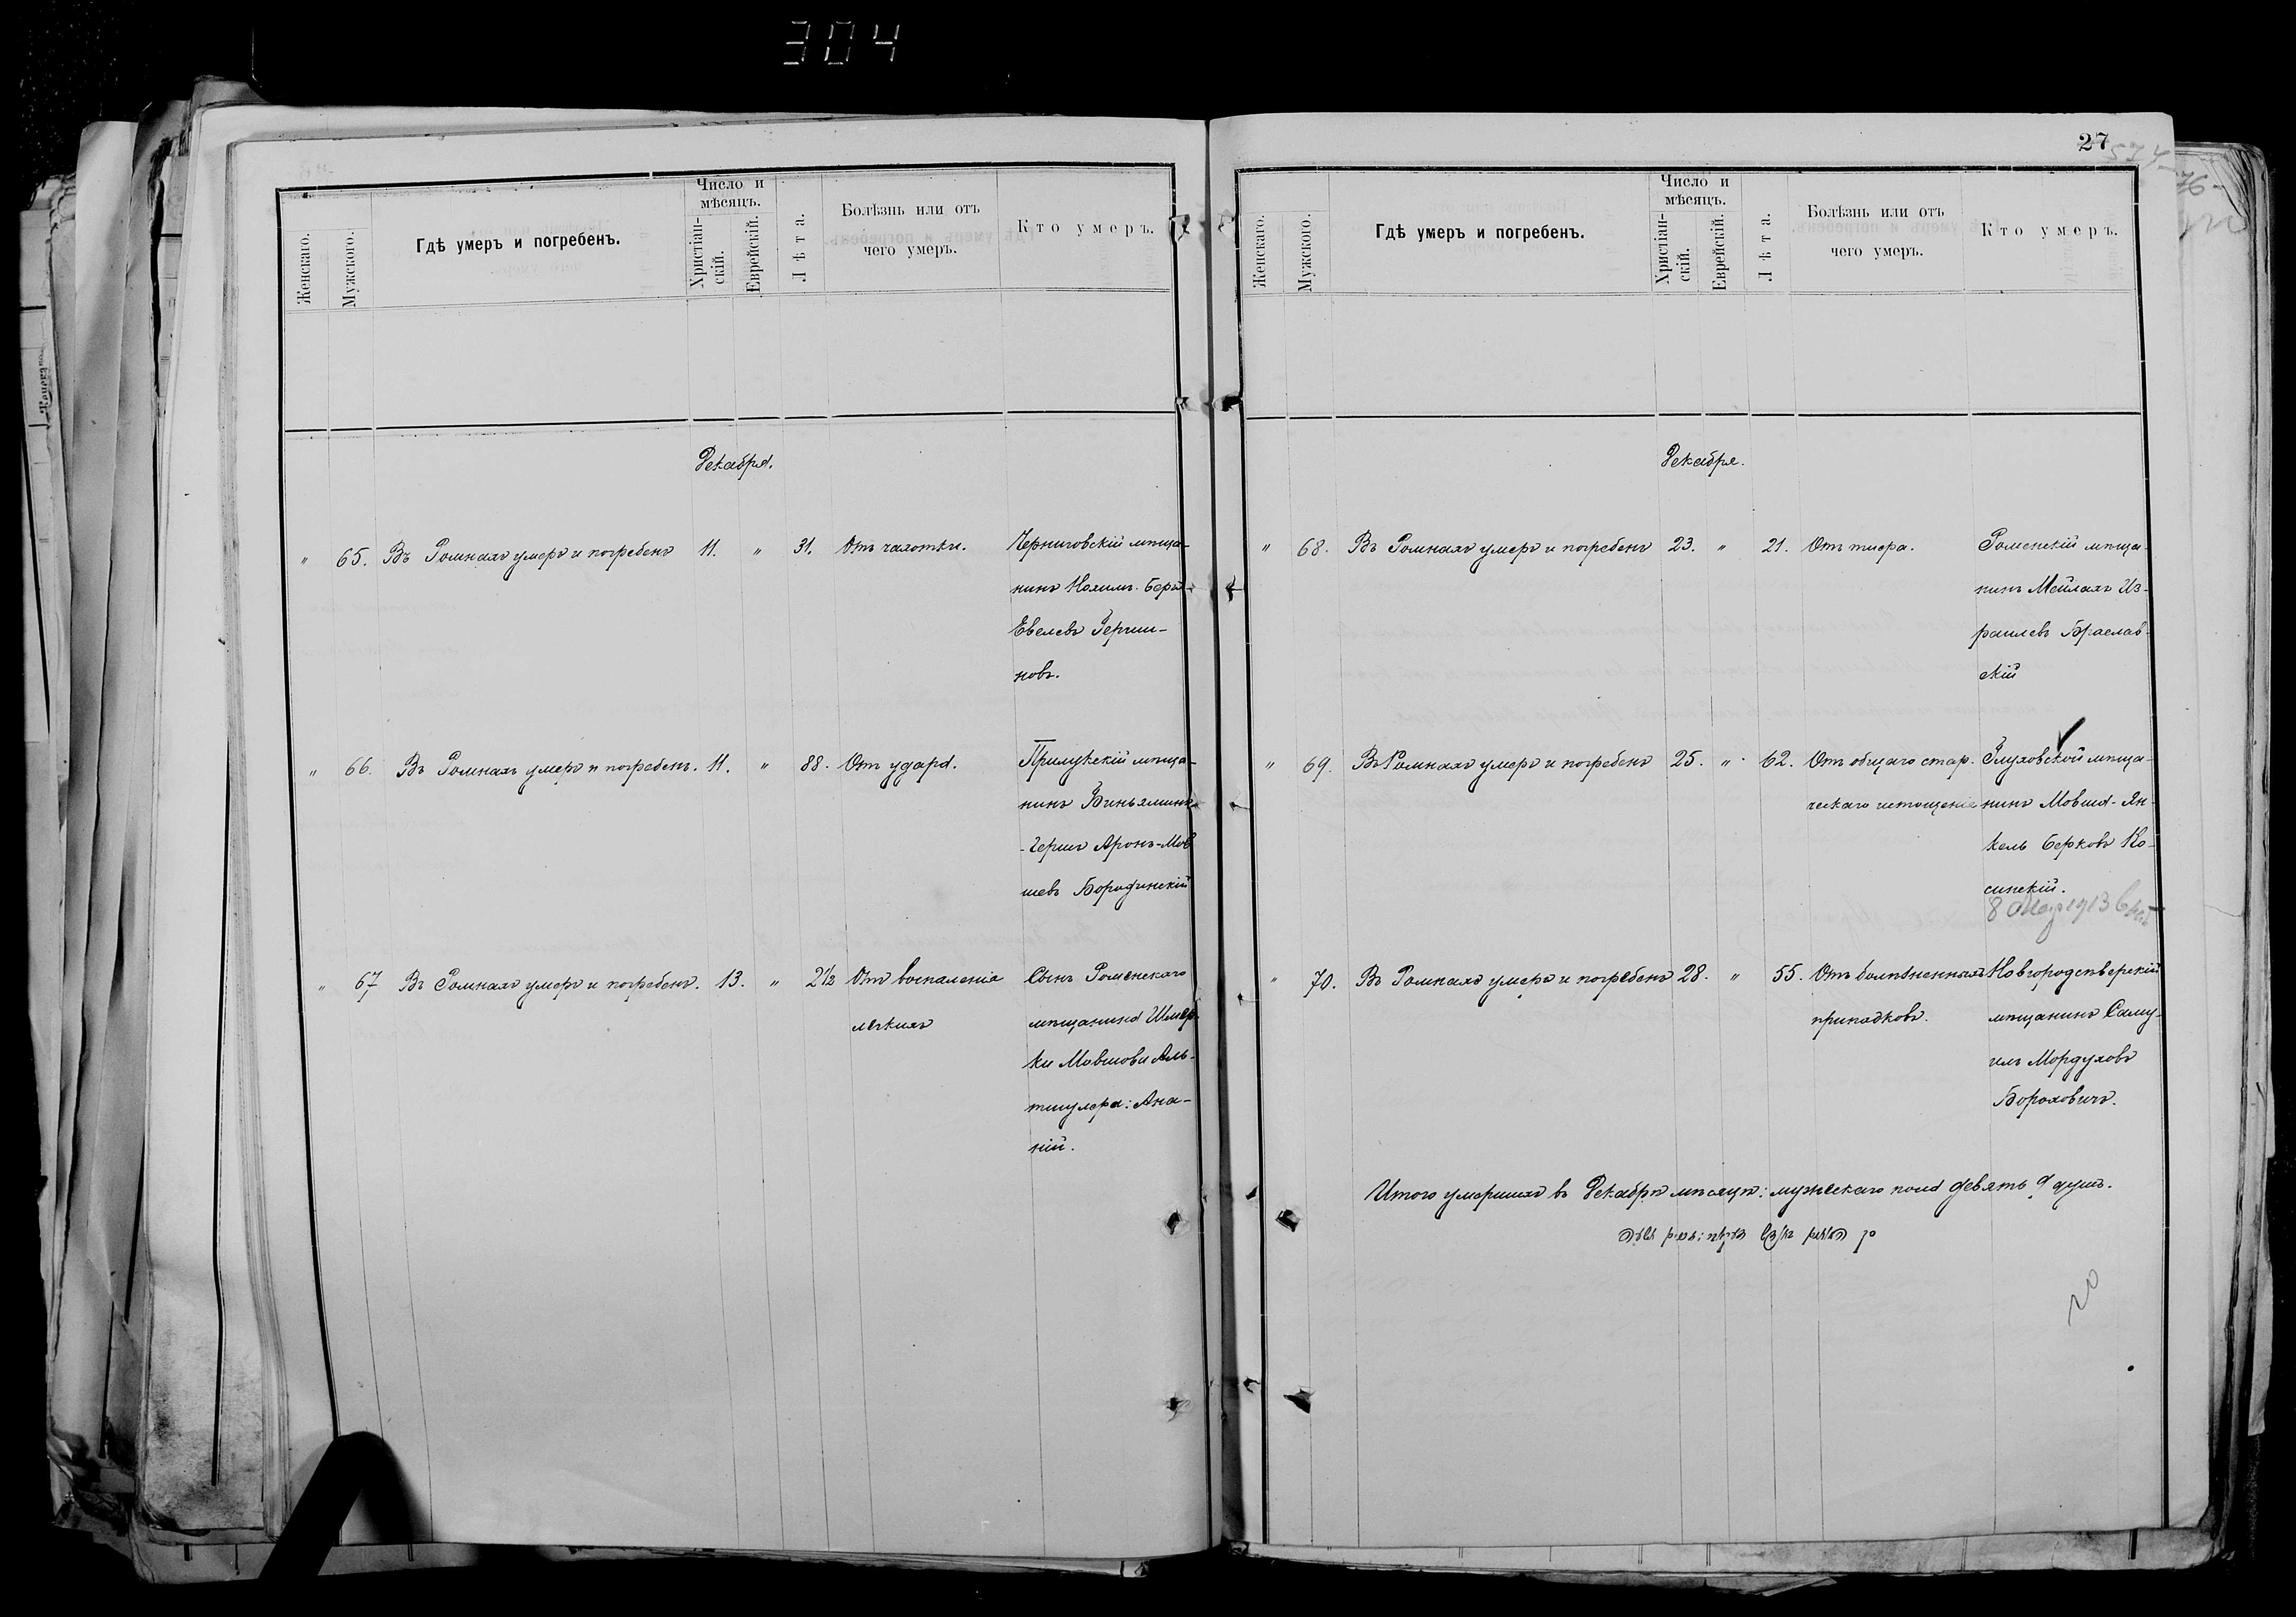 304
Женскаго.
Мужского.
Гдѣ умеръ и погребенъ.
Число и мѣсяцъ.
Христіан-
скій.
Еврейскій.
Лѣта.
Болѣзнь или отъ
чего умеръ.
Кто умеръ.
Декабря.
" 65. Въ Ромнахъ умеръ и погребенъ 11. " 31. Отъ чахотки. Черниговскій мѣща-
нинъ Нохимъ-Беръ
Евелевъ Герши-
новъ.
" 66. Въ Ромнахъ умеръ и погребенъ. 11. " 88. Отъ удара. Прилуцкій мѣща-
нинъ Биньяминъ
-Гершъ Аронъ-Мов
шевъ Бородинскій
" 67 Въ Ромнахъ умеръ и погребенъ. 13. " 2½ Отъ воспаленія Сынъ Роменскаго
легкихъ мѣщанина Шмер-
ки Мовшова Аль-
тшулера: Ана-
ній.
27
574
76
Женскаго.
Мужского.
Гдѣ умеръ и погребенъ.
Число и
мѣсяцъ.
Христіан-
скій.
Еврейскій.
Лѣта.
Болѣзнь или отъ
чего умеръ.
Кто умеръ.
Декабря.
" 68. Въ Ромнахъ умеръ и погребенъ 23. " 21. Отъ тифа. Роменскій мѣща-
нинъ Мейлахъ Из-
раилевъ Браслав-
скій
" 69. Въ Ромнахъ умеръ и погребенъ 25. " 62. Отъ общаго стар- Глуховской мѣща-
ческаго истощенія нинъ Мовша-Ян-
кель Берковъ Ко-
синскій.
8 Мар 1913
" 70. Въ Ромнахъ умеръ и погребенъ 28. " 55. Отъ болѣзненныхъ Новгородсѣверскій
припадковъ. мѣщанинъ Саму-
илъ Мордуховъ
Бороховичъ.
Итого умершихъ въ Декабрѣ мѣсяцѣ: мужескаго пола девять 9 душъ.